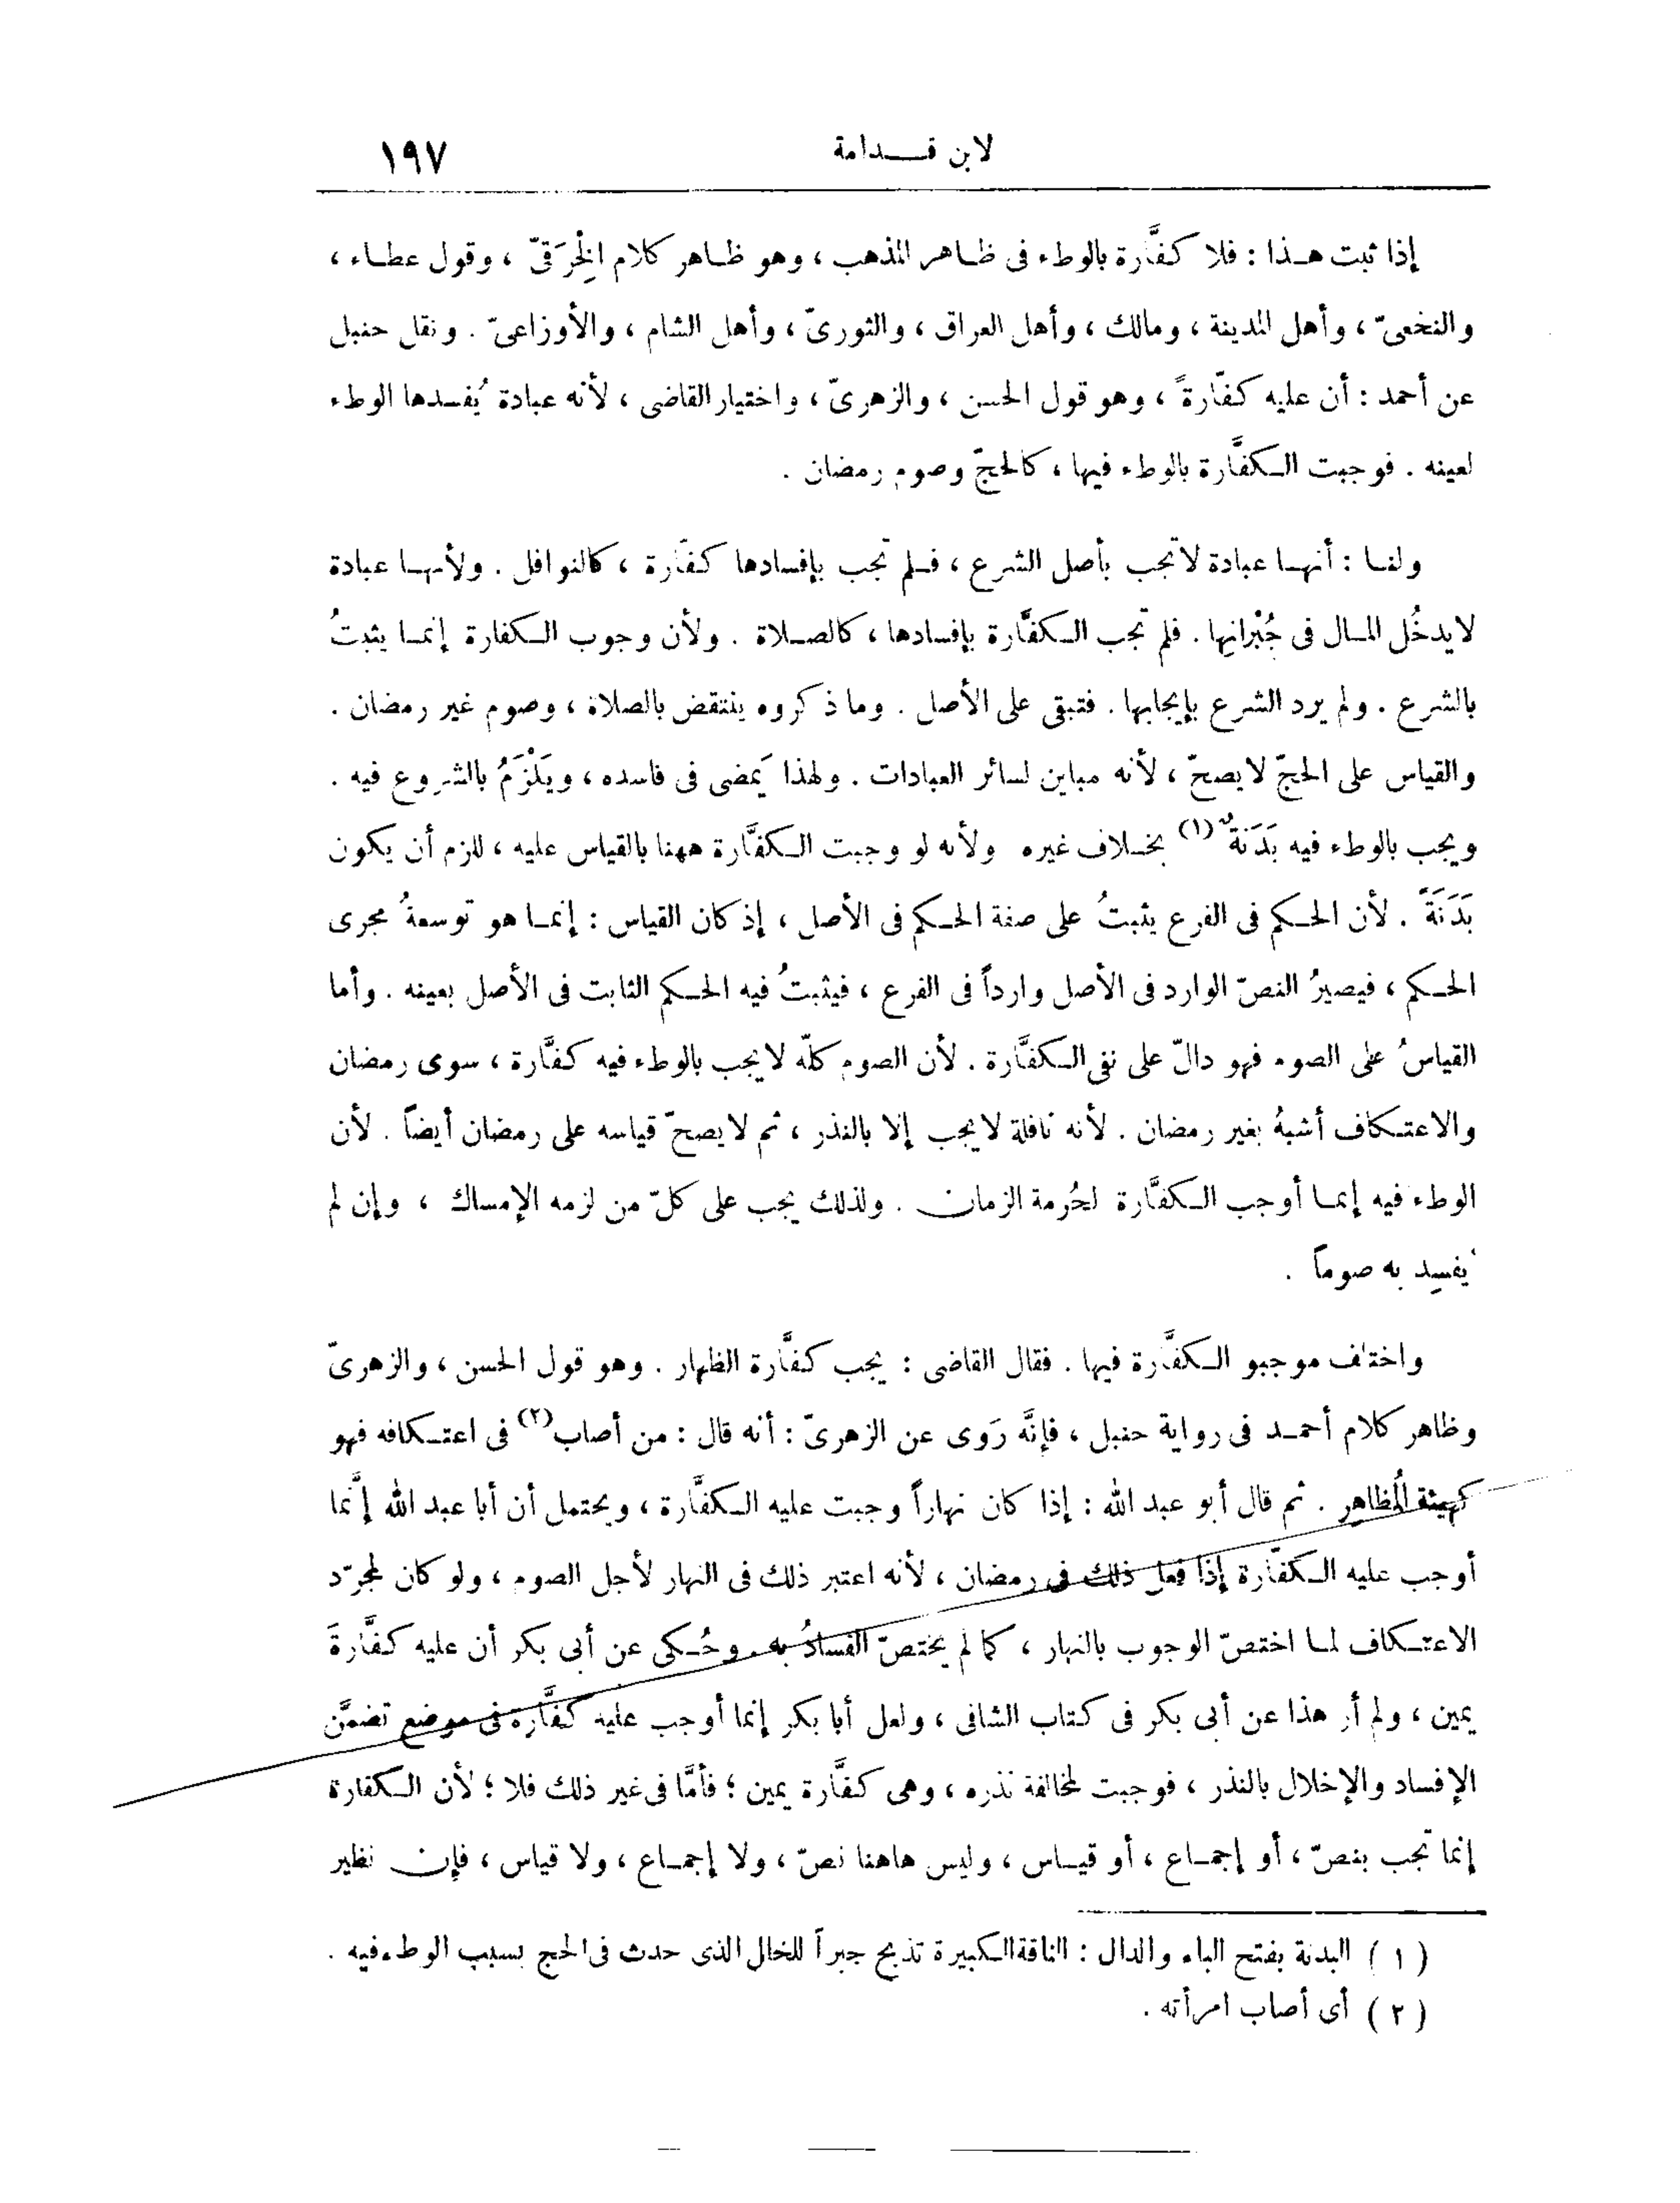 لابن قدامة ١٩٧
إذا ثبت هذا : فلا كفَّارة بالوطء فى ظاهر المذهب ، وهو ظاهر كلام الْخِرَقىّ ، وقول عطاء ،
والنخعىّ ، وأهل المدينة ، ومالك ، وأهل العراق ، والثورىّ ، وأهل الشام ، والأوزاعىّ . ونقل حنبل
عن أحمد : أن عليه كفّارةً ، وهو قول الحسن ، والزهرىّ ، واختيار القاضى ، لأنه عبادة يُفسدها الوطء
لعينه . فوجبت الكفَّارة بالوطء فيها ، كالحجّ وصوم رمضان .
ولنا : أنها عبادة لا تجب بأصل الشرع ، فلم تجب بإفسادها كفّارة ، كالنوافل . ولأنها عبادة
لايدخُل المال فى جُبْرانِها . فلم تجب الكفَّارة بإفسادها ، كالصلاة . ولأن وجوب الكفارة إنما يثبتُ
بالشرع . ولم يرد الشرع بإيجابها . فتبقى على الأصل . وما ذكروه ينتقض بالصلاة ، وصوم غير رمضان .
والقياس على الحجّ لايصحّ ، لأنه مباين لسائر العبادات . ولهذا يَمضى فى فاسده ، ويَلْزَمُ بالشروع فيه .
ويجب بالوطء فيه بَدَنةٌ (١) بخلاف غيره ولأنه لو وجبت الكفَّارة ههنا بالقياس عليه ، للزم أن يكون
بَدَنَةً . لأن الحكم فى الفرع يثبتُ على صفة الحكم فى الأصل ، إذ كان القياس : إنما هو توسعةُ مجرى
الحكم ، فيصيرُ النصّ الوارد فى الأصل وارداً فى الفرع ، فيثبتُ فيه الحكم الثابت فى الأصل بعينه . وأما
القياسُ على الصوم فهو دالّ على نفى الكفَّارة . لأن الصوم كلّه لايجب بالوطء فيه كفَّارة ، سوى رمضان
والاعتكاف أشبهُ بغير رمضان . لأنه نافلة لايجب إلا بالنذر ، ثم لايصحّ قياسه على رمضان أيضاً . لأن
الوطء فيه إنما أوجب الكفَّارة لحُرمة الزمان . ولذلك يجب على كلّ من لزمه الإمساك ، وإن لم
يُفسِد به صوماً .
واختلف موجبو الكفَّارة فيها . فقال القاضى : يجب كفَّارة الظهار . وهو قول الحسن ، والزهرىّ
وظاهر كلام أحمد فى رواية حنبل ، فإنَّه رَوى عن الزهرىّ : أنه قال : من أصاب (٢) فى اعتكافه فهو
كهيئة المُظاهِر . ثم قال أبو عبد الله : إذا كان نهاراً وجبت عليه الكفَّارة ، ويحتمل أن أبا عبد الله إنَّما
أوجب عليه الكفّارة إذا فعل ذلك فى رمضان ، لأنه اعتبر ذلك فى النهار لأجل الصوم ، ولو كان لمجرّد
الاعتكاف لما اختصّ الوجوب بالنهار ، كما لم يختصّ الفسادُ به . وحُكى عن أبى بكر أن عليه كفَّارةَ
يمين ، ولم أر هذا عن أبى بكر فى كتاب الشافى ، ولعل أبا بكر إنما أوجب عليه كفَّارة فى موضع تضمَّن
الإفساد والإخلال بالنذر ، فوجبت لمخالفة نذره ، وهى كفَّارة يمين ؛ فأمَّا فى غير ذلك فلا ؛ لأن الكفارة
إنما تجب بنصّ ، أو إجماع ، أو قياس ، وليس هاهنا نصّ ، ولا إجماع ، ولا قياس ، فإن نظير
( ١ ) البدنة بفتح الباء والدال : الناقة الكبيرة تذبح جبراً للخال الذى حدث فى الحج بسبب الوطء فيه .
( ٢ ) أى أصاب امرأته .